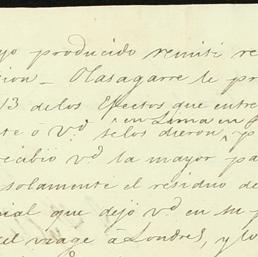 yo producido remiti re
cion_ Olasagarre le pr
13 delos Efectos que entre
te o Vd. en Lima
selos dieron, p
recibio Vd la mayor pa
solamente el residuo de
ial que dejó Vd en su p
el viage à Londres, y lo